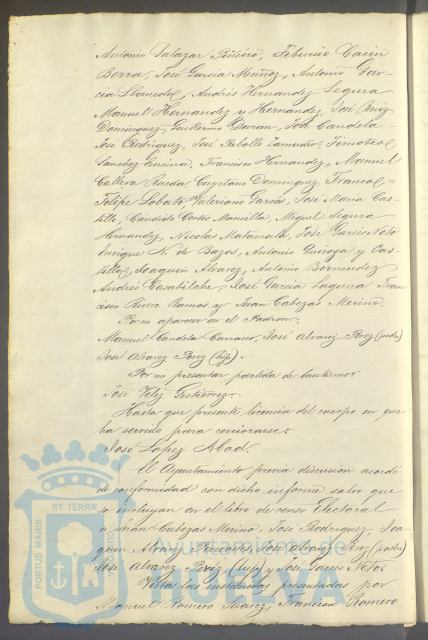 Antonio Salazar Piñeiro, Tiburcio Cacin
Berra, José Garcia Muñoz, Antonio Gar-
cia Llanedo, Andrés Hernandez Segura
Manuel Hernandez y Hernandez, José Ruiz
Dominguez, Guillermo Duran, José Candela
José Rodriguez, José Rebollo Zamudio, Timoteo
Sanchez Encina, Francisco Hernandez, Manuel
Callera Rueda, Cayetano Dominguez
Felipe Lobato, Valeriano Garcia, José Maria Cas-
tillo, Cándido Cortés Mancilla, Miguel Segura
Hernandez, Nicolas Matamala, José Garcés Noto
Enrique N. de Bazos, Antonio Quiroga y Cas-
tillo, Joaquin Alvarez, Antonio Bermudez
Andrés Casabilche, José Garcia Laguna Fran-
cisco Rivero Ramos, y Juan Cabezas Merino.
Por no aparecer en el Padron.
Manuel Candela Carrasco, José Alvarez Perez (padre)
José Alvarez Perez (hijo).
Por no presentar partida de bautismo
José Velez Gutierrez.
Hasta que presente licencia del cuerpo en que
ha servido para cerciorarse.
José Lopez Abad.
El Ayuntamiento previa discusion acordó
de conformidad con dicho informe salvo que
se incluyan en el libro de censo Electoral
a Juan Cabezas Merino, José Rodriguez, Joa-
quin Alvarez, José Alvarez Perez (padre)
José Alvarez Perez (hijo) y José Garcés Noto.
Vistas las instancias presentadas por
Manuel Romero Suarez, Francisco Romero
PORTUS MARIS ET TERRAE CUSTODIA
Ayuntamiento de